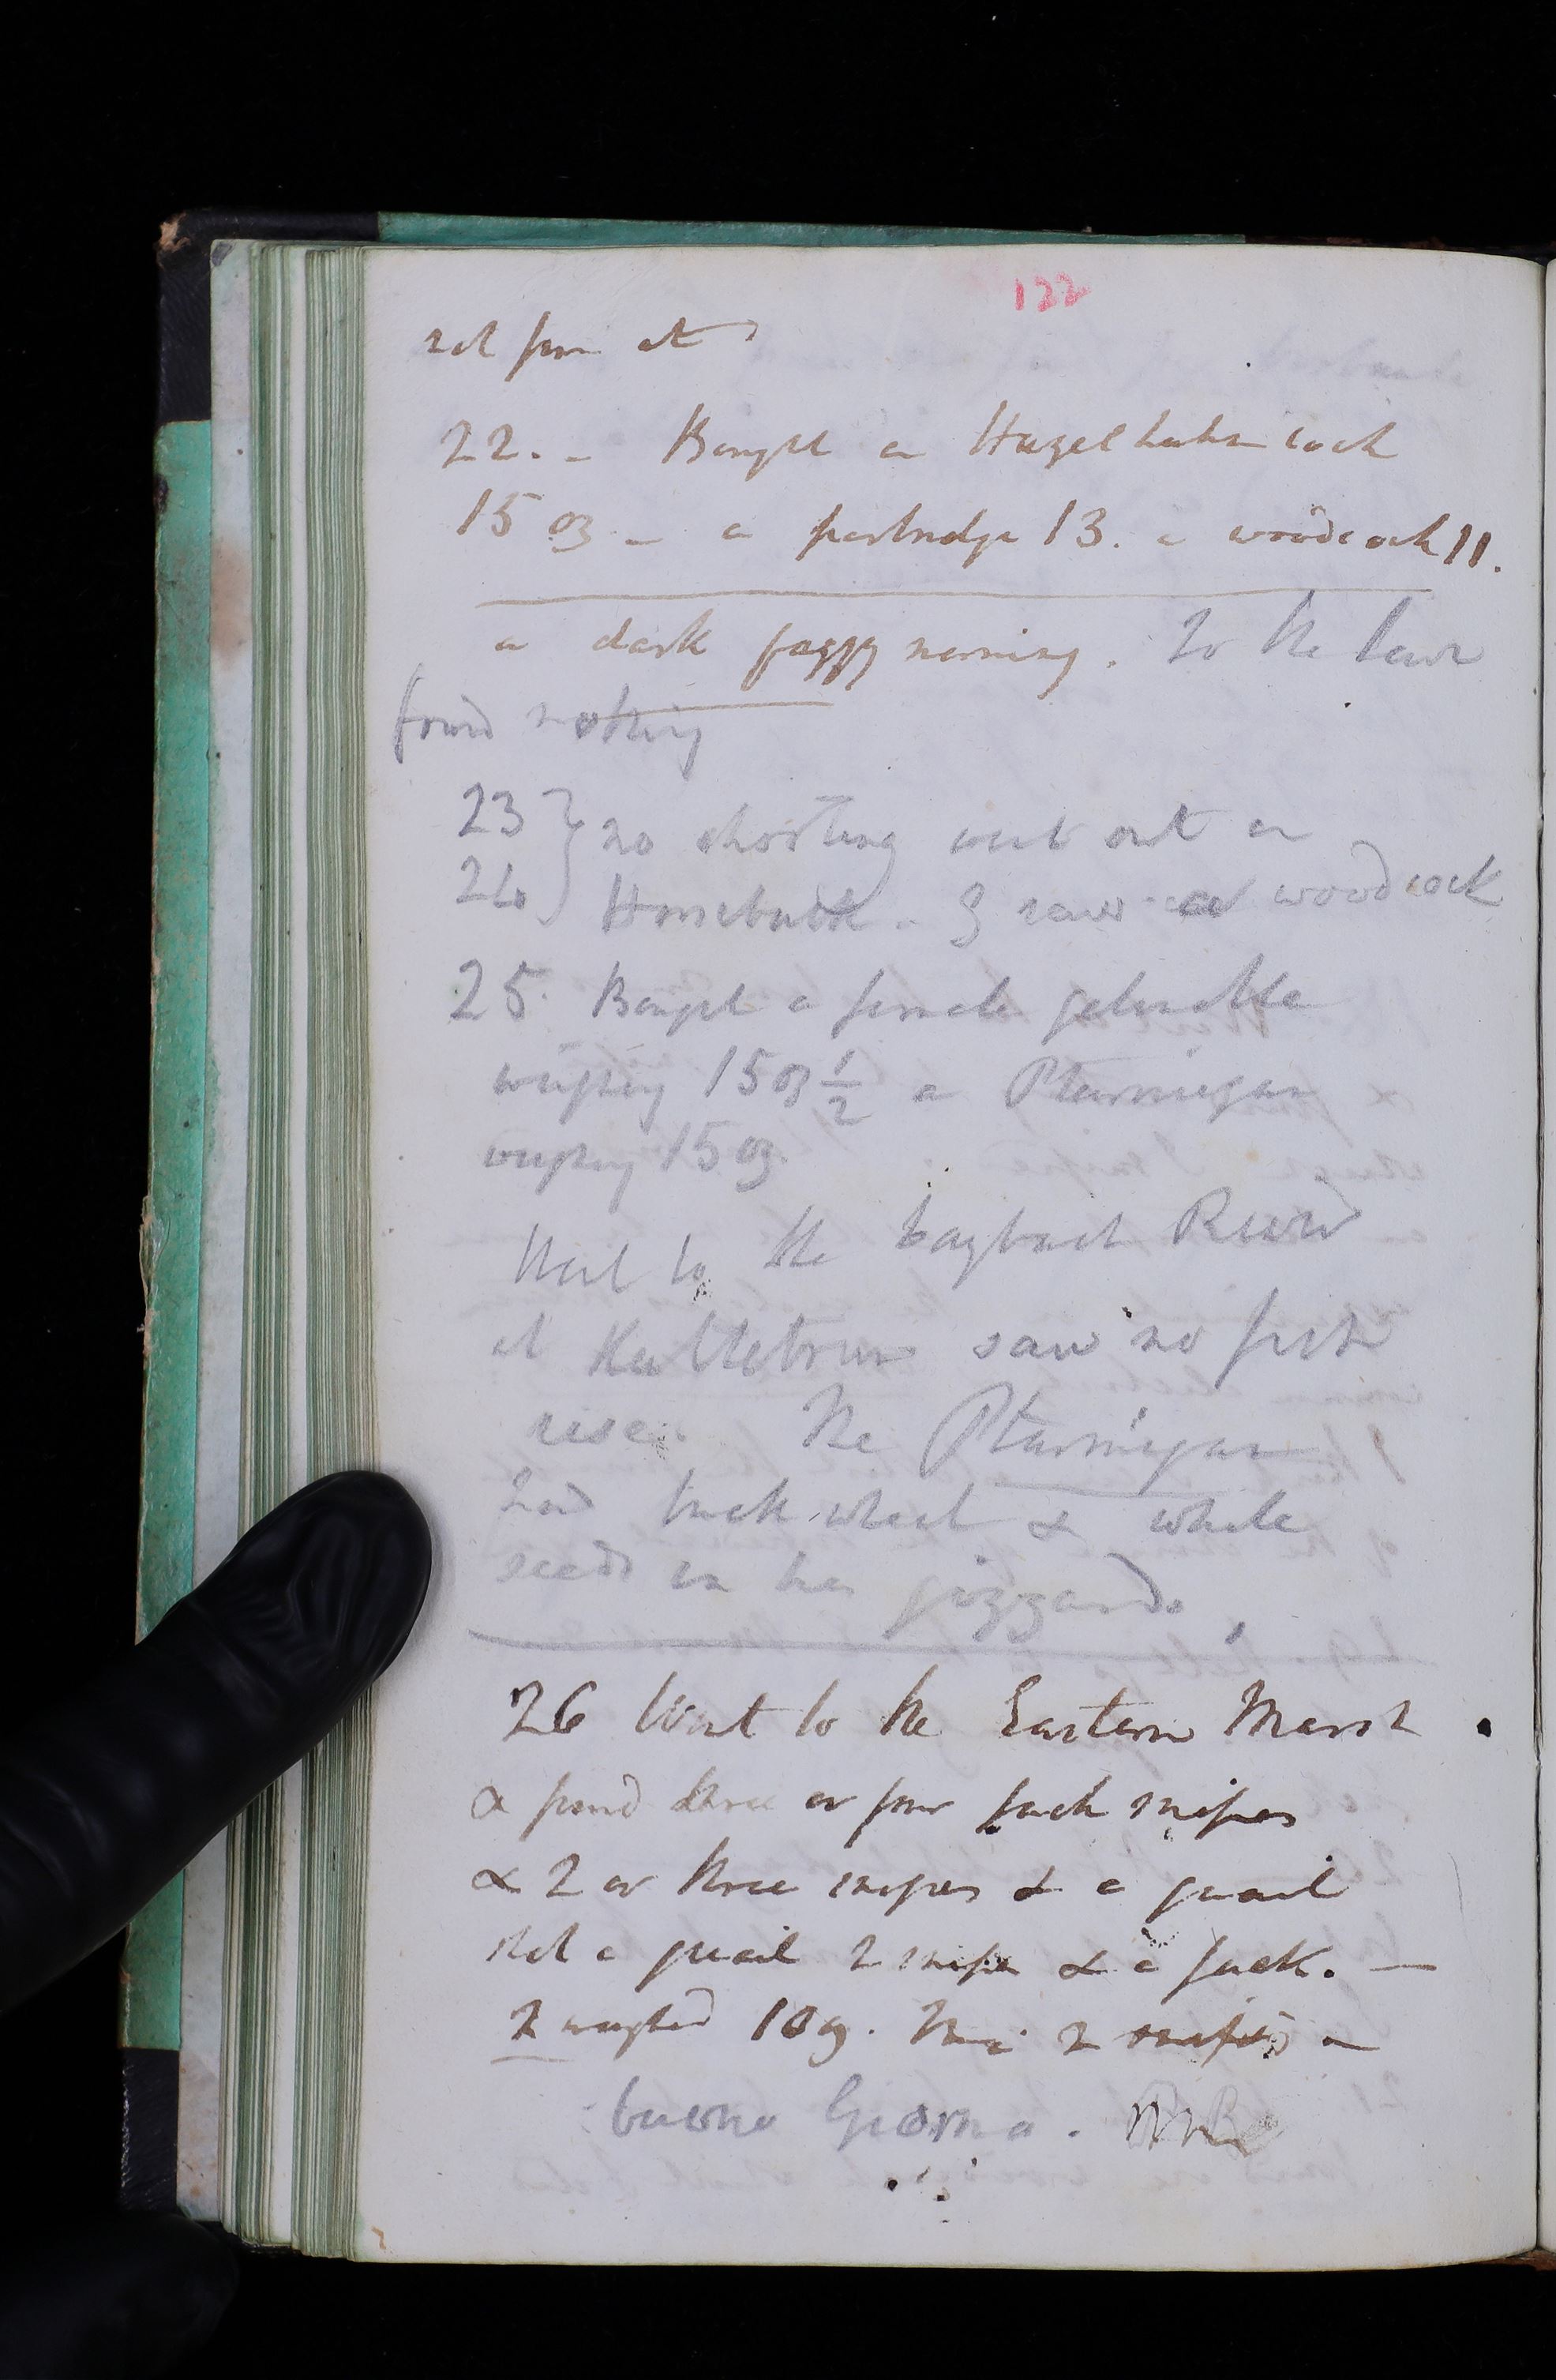 122
not fire at
22. - Bought a Hazel huhn cock
15 oz - a partridge 13. a woodcock 11.
a dark foggy morning. To the Save
found nothing
23 } no shooting went out on
24 } Horseback. I saw a woodcock
25 Bought a female gelinotte
weighing 15 oz 1/2 a Ptarmigan
weighing 15 oz.
Went to the Laybach Road
at saw no fish
rise. The Ptarmigan
had buck wheat & whole
seeds in her gizzard.
26 Went to the Eastern Marsh
& found three or four Jack snipes
& 2 or three snipes & a quail
shot a quail 2 snipes & a Jack. —
2 weighed 10 oz. 2 snipes
buono Giorno.